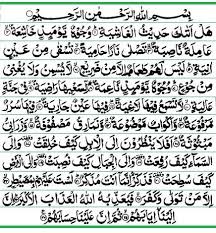 بِسْمِ اللَّهِ الرَّحْمَٰنِ الرَّحِيمِ
هَلْ أَتَىٰكَ حَدِيثُ الْغَاشِيَةِ وُجُوهٌ يَوْمَئِذٍ خَاشِعَةٌ
عَامِلَةٌ نَاصِبَةٌ تَصْلَىٰ نَارًا حَامِيَةً تُسْقَىٰ مِنْ عَيْنٍ
آنِيَةٍ لَيْسَ لَهُمْ طَعَامٌ إِلَّا مِنْ ضَرِيعٍ لَا يُسْمِنُ وَلَا يُغْنِي
مِنْ جُوعٍ وُجُوهٌ يَوْمَئِذٍ نَاعِمَةٌ لِسَعْيِهَا رَاضِيَةٌ فِي جَنَّةٍ
عَالِيَةٍ لَا تَسْمَعُ فِيهَا لَاغِيَةً فِيهَا عَيْنٌ جَارِيَةٌ فِيهَا سُرُرٌ
مَرْفُوعَةٌ وَأَكْوَابٌ مَوْضُوعَةٌ وَنَمَارِقُ مَصْفُوفَةٌ وَزَرَابِيُّ
مَبْثُوثَةٌ أَفَلَا يَنْظُرُونَ إِلَى الْإِبِلِ كَيْفَ خُلِقَتْ وَإِلَى
السَّمَاءِ كَيْفَ رُفِعَتْ وَإِلَى الْجِبَالِ كَيْفَ نُصِبَتْ وَإِلَى الْأَرْضِ
كَيْفَ سُطِحَتْ فَذَكِّرْ إِنَّمَا أَنْتَ مُذَكِّرٌ لَسْتَ عَلَيْهِمْ بِمُصَيْطِرٍ
إِلَّا مَنْ تَوَلَّىٰ وَكَفَرَ فَيُعَذِّبُهُ اللَّهُ الْعَذَابَ الْأَكْبَرَ إِنَّ
إِلَيْنَا إِيَابَهُمْ ثُمَّ إِنَّ عَلَيْنَا حِسَابَهُمْ